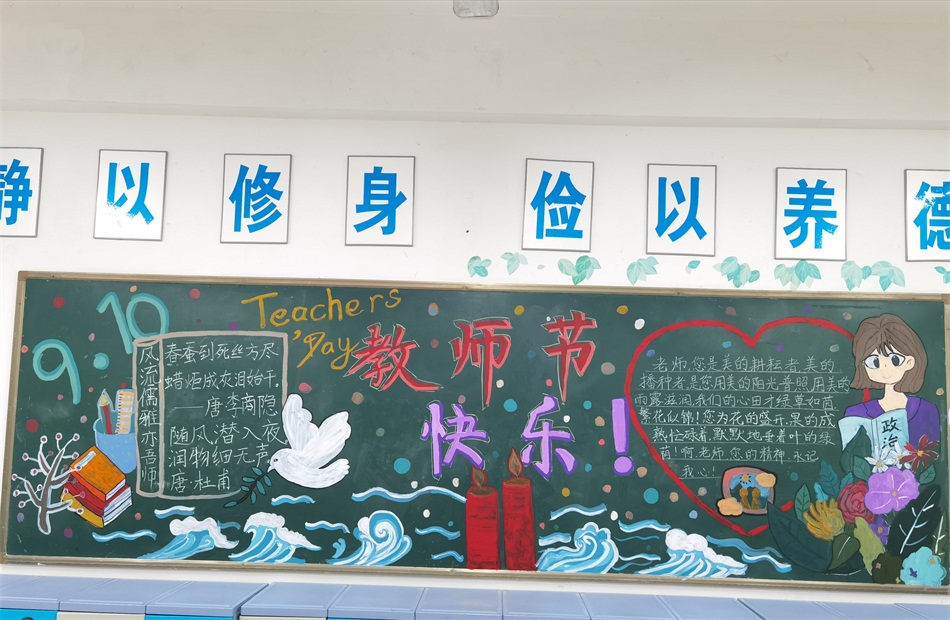 静以修身 俭以养德
9.10
Teachers
'Day
教师节
快乐!
风流儒雅亦吾师
春蚕到死丝方尽
蜡炬成灰泪始干。
——唐李商隐
随风潜入夜
润物细无声
唐·杜甫
老师,您是美的耕耘者,美的
播种者是您用美的阳光普照用美的
雨露滋润,我们的心田才绿草如茵
繁花似锦!您为花的盛开,果的成
熟忙碌着,默默地垂着叶的绿
荫!啊,老师,您的精神,永记
我心!
政治